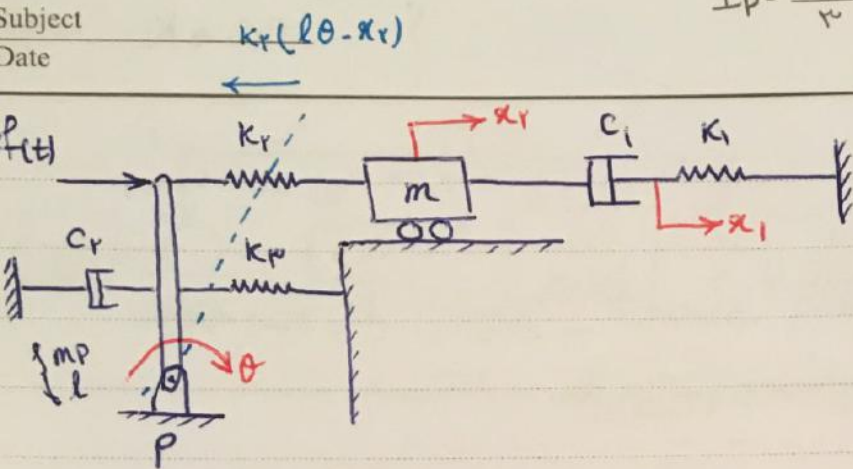 Subject
Date
I_P
۳
K۲(lθ-x۲)
f(t)
K۲
x۲
m
C۱
K۱
x۱
C۲
K۳
m_P
l
θ
P